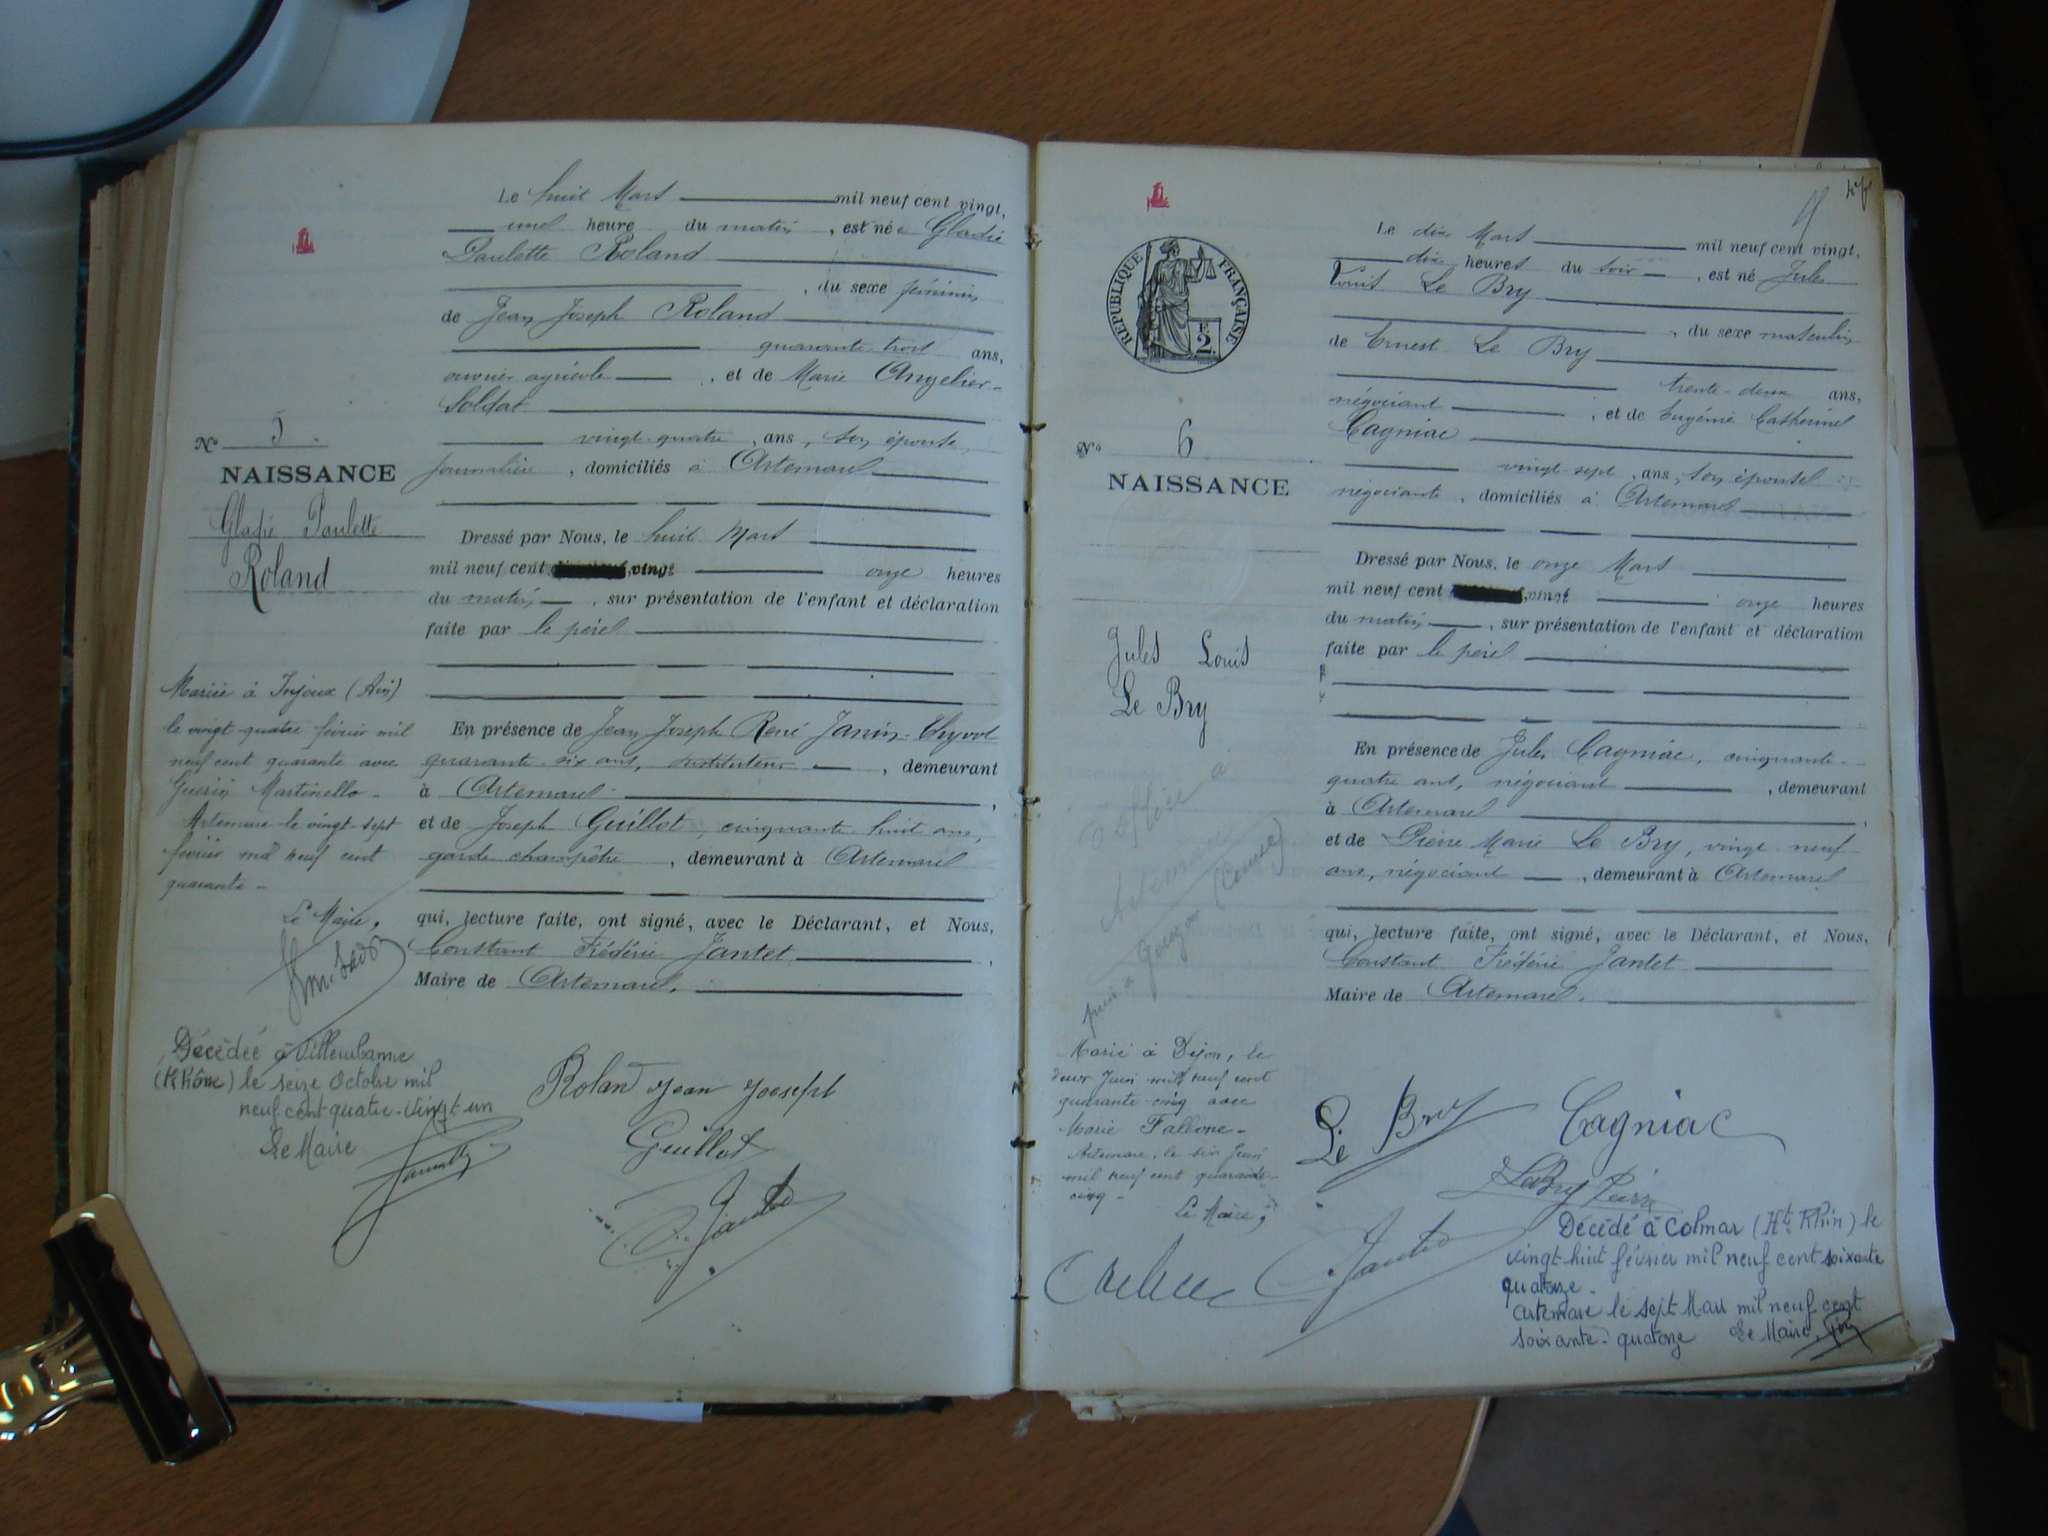 Le huit Mars mil neuf cent vingt,
une heure du matin, est née Gladie
Paulette Roland
, du sexe féminin
de Jean Joseph Roland
quarante-trois ans,
ouvrier agricole, et de Marie Angelier-
Soldat
vingt-quatre, ans, son épouse,
journalière, domiciliés à Artemare
Dressé par Nous, le huit Mars
mil neuf cent vingt onze heures
du matin, sur présentation de l'enfant et déclaration
faite par le père
En présence de Jean Joseph René Janin-Thyvol
quarante-six ans, instituteur, demeurant
à Artemare,
et de Joseph Guillot, cinquante huit ans,
garde champêtre, demeurant à Artemare
qui, lecture faite, ont signé, avec le Déclarant, et Nous,
Constant Frédéric Jantet,
Maire de Artemare.
Nº 5.
NAISSANCE
Paulette
Roland
Mariée à Injoux (Ain)
le vingt-quatre février mil
neuf cent quarante avec
Guérin Martinello-
Artemare le vingt-sept
février mil neuf cent
quarante-
Le Maire,
Décédée à Villeurbanne
(Rhône) le seize Octobre mil
neuf cent quatre-vingt-un
Le Maire
Roland Jean Joeseph
Guillot
C. Jantet
Nº 6
NAISSANCE
RÉPUBLIQUE FRANÇAISE
2
F.
Jules Louis
Le Bry
Le dix Mars mil neuf cent vingt,
dix heures du soir, est né Jules
Louis Le Bry
, du sexe masculin
de Ernest Le Bry
trente-deux ans,
négociant, et de Eugénie Catherine
Cagniac
vingt-sept, ans, son épouse
négociante, domiciliés à Artemare
Dressé par Nous, le onze Mars
mil neuf cent vingt onze heures
du matin, sur présentation de l'enfant et déclaration
faite par le père
En présence de Jules Cagniac, cinquante-
quatre ans, négociant, demeurant
à Artemare,
et de Pierre Marie Le Bry, vingt-neuf
ans, négociant, demeurant à Artemare
qui, lecture faite, ont signé, avec le Déclarant, et Nous,
Constant Frédéric Jantet
Maire de Artemare.
Artemare
puis à Gouzon (Creuse)
Marié à Dijon, le
deux Juin mil neuf cent
quarante-cinq avec
Marie Falbone-
Artemare, le six Juin
mil neuf cent quarante-
cinq-
Le Maire,
Le Bry Cagniac
LeBry Pierre
C. Jantet
Décédé à Colmar (Ht Rhin) le
vingt-huit février mil neuf cent soixante
quatorze.
Artemare le sept Mars mil neuf cent
soixante-quatorze Le Maire,